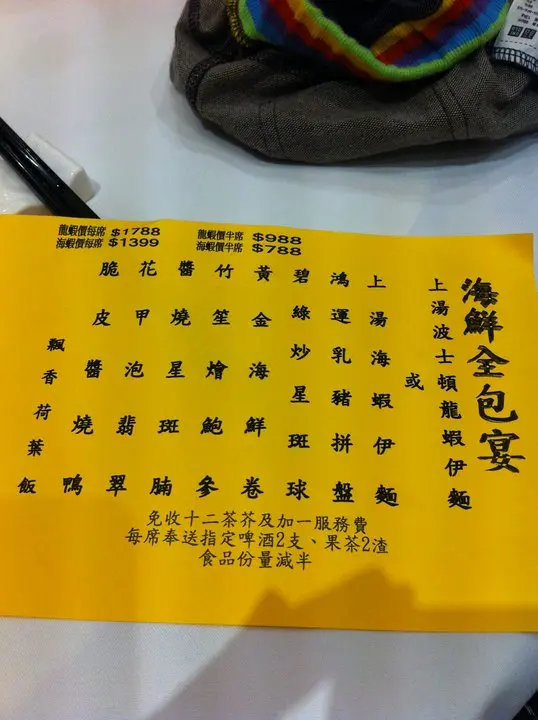 海鮮全包宴
上湯波士頓龍蝦伊麵
或
上湯海蝦伊麵
鴻運乳豬拼盤
碧綠炒星斑球
黃金海鮮卷
竹笙燴鮑參
醬燒星斑腩
花甲泡翡翠
脆皮醬燒鴨
飄香荷葉飯
龍蝦價每席 $1788
海蝦價每席 $1399
龍蝦價半席 $988
海蝦價半席 $788
免收十二茶芥及加一服務費
每席奉送指定啤酒2支、果茶2渣
食品份量減半